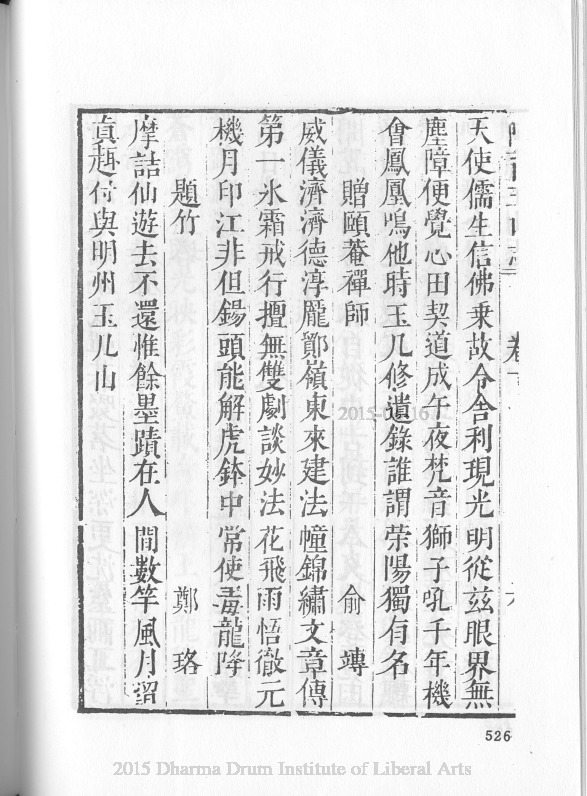 卷
天使儒生信佛乘故令舍利現光明從茲眼界無
塵障便覺心田契道成午夜梵音獅子吼千年機
會鳳凰鳴他時玉几修遺錄誰謂荣陽獨有名
贈頤菴禪師 俞 竱
威儀濟濟德淳龎鄮嶺東來建法幢錦繡文章傳
第一氷霜戒行擅無雙劇談妙法花飛雨悟徹元
機月印江非但錫頭能解虎鉢中常使毒龍降
題竹 鄭 珞
摩詰仙遊去不還惟餘墨蹟在人間數竿風月畱
真趣付與明州玉几山
526
2015 Dharma Drum Institute of Liberal Arts